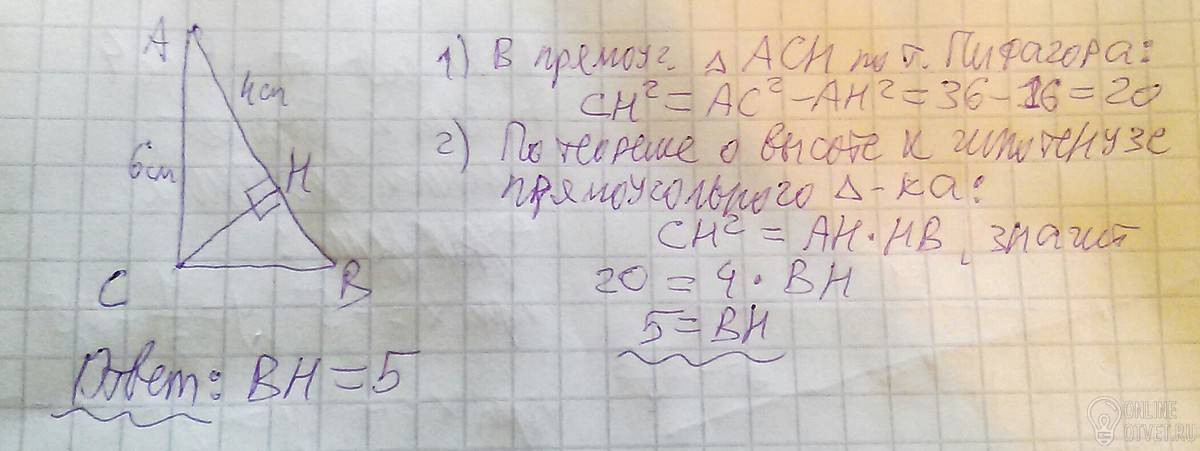 A
4см
6см
H
C
B
1) В прямоуг. △ ACH по т. Пифагора:
CH² = AC² - AH² = 36 - 16 = 20
2) По теореме о высоте к гипотенузе
прямоугольного △-ка:
CH² = AH · HB, значит
20 = 4 · BH
5 = BH
Ответ: BH = 5
ONLINE
OTVET.RU